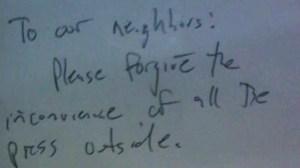 To our neighbors:
Please forgive the
inconvience of all the
press outside.